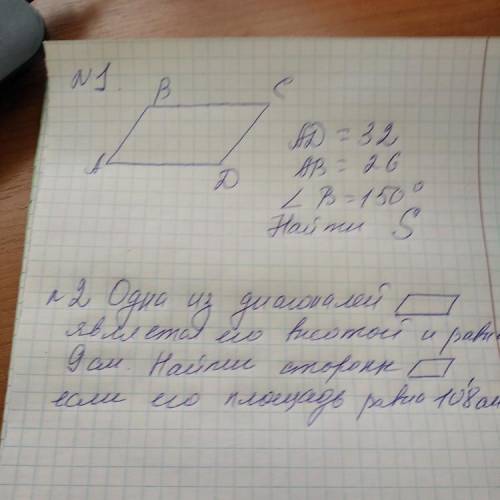 №1.
B C
A D
AD = 32
AB = 26
∠ B = 150°
Найти S
№2 Одна из диагоналей
является его высотой и равна
9 см. Найти стороны ,
если его площадь равна 108 см